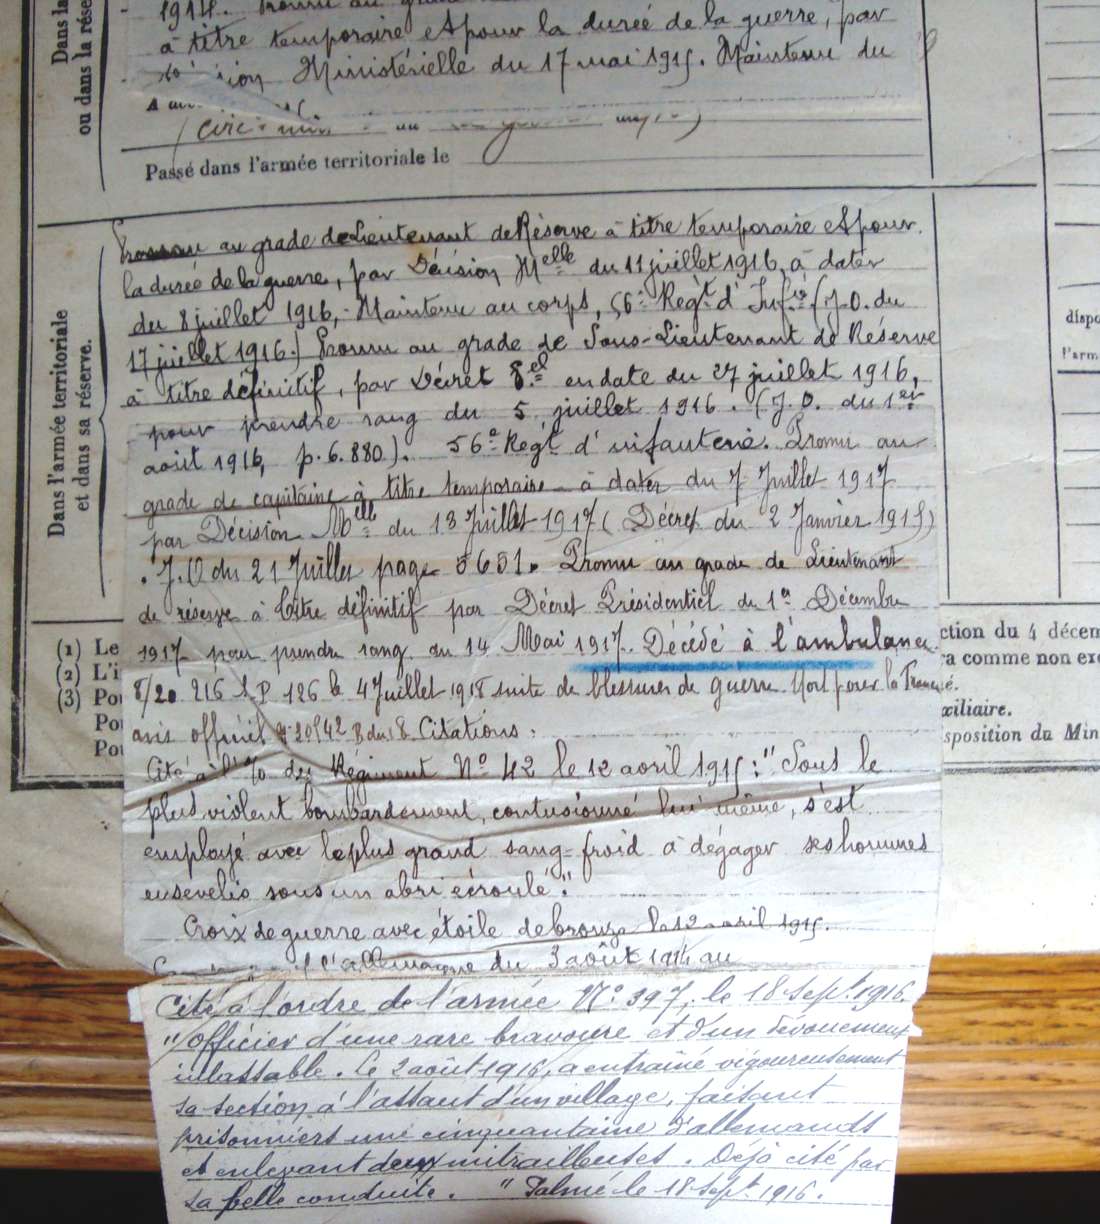 Dans la
ou dans la rése
1914. Promu au grade
à titre temporaire et pour la durée de la guerre, par
Ministérielle du 17 mai 1915. Maintenu du
Passé dans l'armée territoriale le
Dans l'armée territoriale
et dans sa réserve.
Promu au grade de Lieutenant de Réserve à titre temporaire et pour
la durée de la guerre, par Décision Melle du 11 juillet 1916, à dater
du 8 juillet 1916, - Maintenu au corps, 56e Regt d'Infie (J.O. du
17 juillet 1916.) Promu au grade de Sous-Lieutenant de Réserve
à titre définitif, par Décret Pel en date du 27 juillet 1916,
pour prendre rang du 5 juillet 1916. (J.O. du 1er
août 1916, p. 6.880). 56e Régt d'infanterie. Promu au
grade de capitaine à titre temporaire à dater du 7 Juillet 1917
par Décision Mlle du 13 Juillet 1917 (Décret du 2 Janvier 1915)
. J.O du 21 Juillet page 5651. Promu au grade de Lieutenant
de réserve à titre définitif par Décret Présidentiel du 1er Décembre
1917 pour prendre rang du 14 Mai 1917. Décédé à l'ambulance
8/20 216 S.P 126 le 4 Juillet 1918 suite de blessures de guerre. Mort pour la France
avis officiel du 8. Citations.
Cité à l'O du Régiment No 42 le 12 avril 1915: "Sous le
plus violent bombardement, contusionné lui même, s'est
employé avec le plus grand sang-froid à dégager ses hommes
ensevelis sous un abri écroulé."
Croix de guerre avec étoile de bronze le 12 avril 1915.
l'allemagne du 3 août 1914 au
Cité à l'ordre de l'armée No 397, le 18 Sept. 1916.
"Officier d'une rare bravoure et d'un dévouement
inlassable. Le 2 août 1916, a entraîné vigoureusement
sa section à l'assaut d'un village, faisant
prisonniers une cinquantaine d'allemands
et enlevant deux mitrailleuses. Déjà cité par
sa belle conduite. " Palme le 18 Sept. 1916.
(1) Le
(2) L'i
(3) Pou
Pou
Pou
ction du 4 décem
ra comme non exe
é.
xiliaire.
sposition du Min
dispo
l'arm